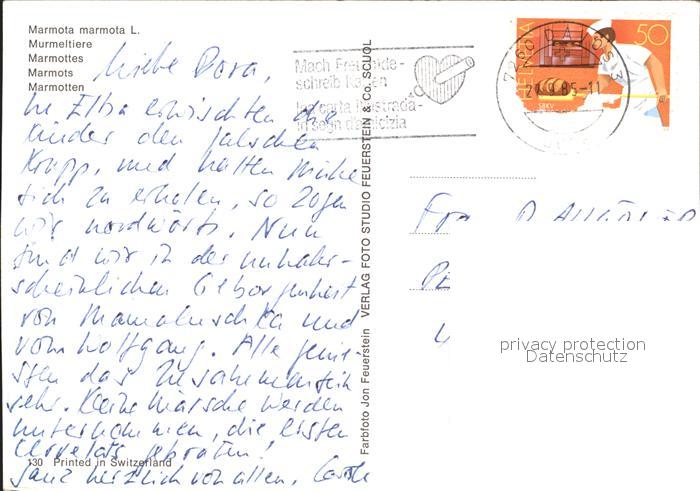 Marmota marmota L.
Murmeltiere
Marmottes
Marmots
Marmotten
Liebe Dora,
in Elba erwischten die
Kinder den falschen
Krupp, und hatten Mühe
sich zu erholen, so zogen
wir nordwärts. Nun
sind wir in der unwahr-
scheinlichen Geborgenheit
von Mamaluschka und
vom Wolfgang. Alle genie-
ssen das Zusammensein
sehr. Kleine Märsche werden
unternommen, die ersten
Cervelats gebraten!
Ganz herzlich von allen,
130 Printed in Switzerland
Farbfoto Jon Feuerstein VERLAG FOTO STUDIO FEUERSTEIN & Co. SCUOL
Mach Freude -
schreib Karten
HELVETIA
50
SBKV
7260 DAVOS 3
9.85-11
privacy protection
Datenschutz